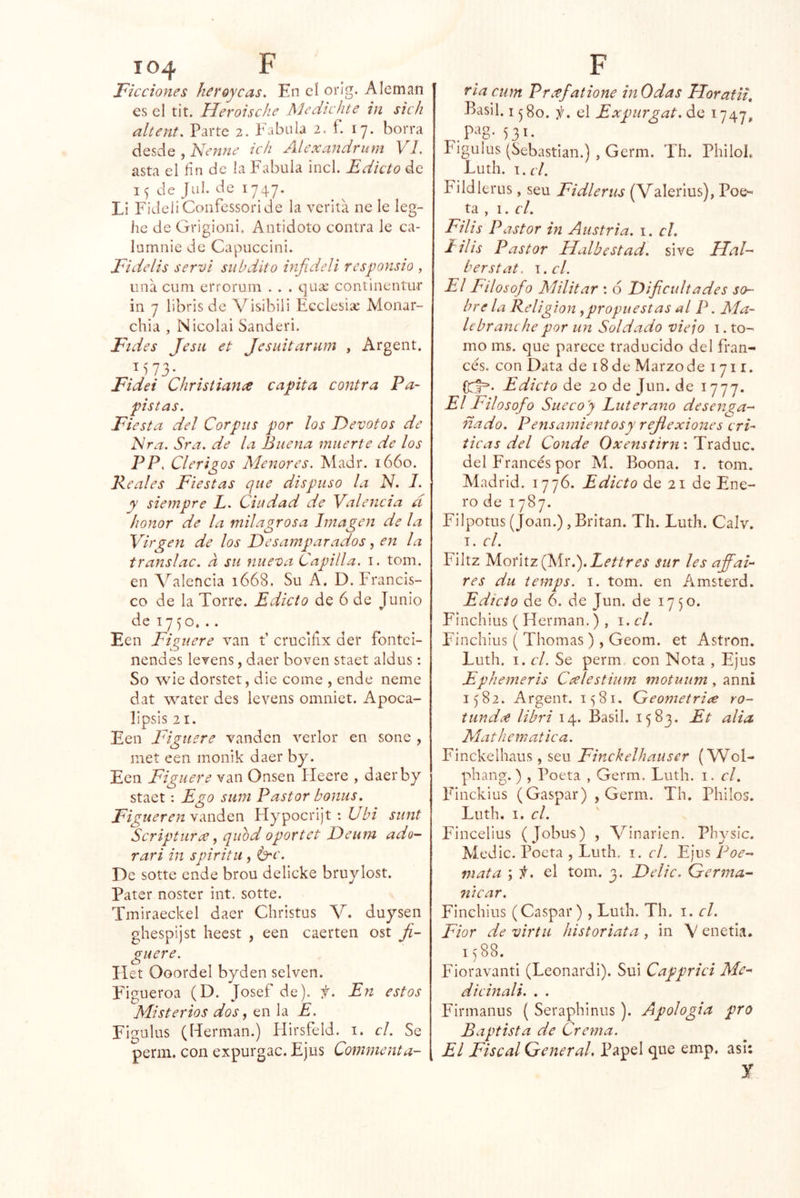 104 F
Ficciones heroycas. En el orig. Aleman
es el tit. Heroische Medichte in sich
altent. Parte 2. Fabula 2. f. 17. borra
desde , Nenne ich Alexandrum VI.
asta el fin de la Fabula incl. Edicto de
15 de Jul. de 1747.
Li Fideli Confessori de la verità ne le leg-
he de Grigioni. Antidoto contra le ca-
lumnie de Capuccini.
Fidelis servi subdito infideli responsio ,
unà cum errorum . . . quæ continentur
in 7 libris de Visibili Ecclesiæ Monar-
chia , Nicolai Sanderi.
Fides Jesu et Jesuitarum , Argent.
1573.
Fidei Christianæ capita contra Pa-
pistas.
Fiesta del Corpus por los Devotos de
Nra. Sra. de la Buena muerte de los
PP. Clerigos Menores. Madr. 1660.
Reales Fiestas que dispuso la N. I.
y siempre L. Ciudad de Valencia á
honor de la milagrosa Imagen de la
Virgen de los Desamparados, en la
translac. à su nueva Capilla. 1. tom.
en Valencia 1668. Su A. D. Francis-
co de la Torre. Edicto de 6 de Junio
de 1750. . .
Een Figuere van t' crucifix der fontei-
nendes levens, daer boven staet aldus :
So wie dorstet, die come , ende neme
dat water des levens omniet. Apoca-
lipsis 21.
Een Figuere vanden verlor en sone ,
met een monik daer by.
Een Figuere van Onsen Heere , daer by
staet : Ego sum Pastor bonus.
Figueren vanden Hypocrijt : Ubi sunt
Scripturæ, quòd oportet Deum ado-
rari in spiritu, &c.
De sotte ende brou delicke bruylost.
Pater noster int. sotte.
Tmiraeckel daer Christus V. duysen
ghespijst heest , een caerten ost fi-
guere.
Het Ooordel byden selven.
Figueroa (D. Josef de). ꝟ. En estos
Misterios dos, en la E.
Figulus (Herman.) Hirsfeld. 1. cl. Se
perm. con expurgac. Ejus Commenta-
F
ria cum Præfatione in Odas Horatii.
Basil. 1580. ꝟ. el Expurgat. de 1747,
pag. 531.
Figulus (Sebastian.) , Germ. Th. Philol.
Luth. 1. cl.
Fildlerus, seu Fidlerus (Valerius), Poe-
ta , 1. cl.
Filis Pastor in Austria. 1. cl.
Filis Pastor Halbestad. sive Hal-
berstat. 1. cl.
El Filosofo Militar : ó Dificultades so-
bre la Religion, propuestas al P. Ma-
lebranche por un Soldado viejo 1. to-
mo ms. que parece traducido del fran-
cés. con Data de 18 de Marzo de 1711.
☞. Edicto de 20 de Jun. de 1777.
El Filosofo Sueco y Luterano desenga-
ñado. Pensamientos y reflexiones cri-
ticas del Conde Oxenstirn : Traduc.
del Francés por M. Boona. 1. tom.
Madrid. 1776. Edicto de 21 de Ene-
ro de 1787.
Filpotus (Joan.), Britan. Th. Luth. Calv.
1. cl.
Filtz Moritz (Mr.). Lettres sur les affai-
res du temps. 1. tom. en Amsterd.
Edicto de 6. de Jun. de 1750.
Finchius ( Herman. ) , 1. cl.
Finchius ( Thomas ) , Geom. et Astron.
Luth. 1. cl. Se perm. con Nota , Ejus
Ephemeris Cælestium motuum, anni
1582. Argent. 1581. Geometriæ ro-
tundæ libri 14. Basil. 1583. Et alia
Mathematica.
Finckelhaus, seu Finckelhauser (Wol-
phang. ) , Poeta , Germ. Luth. 1. cl.
Finckius (Gaspar) , Germ. Th. Philos.
Luth. 1. cl.
Fincelius (Jobus) , Vinarien. Physic.
Medic. Poeta , Luth. 1. cl. Ejus Poe-
mata ; ꝟ. el tom. 3. Delic. Germa-
nicar.
Finchius (Caspar) , Luth. Th. 1. cl.
Fior de virtu historiata , in Venetia.
1588.
Fioravanti (Leonardi). Sui Capprici Me-
dicinali. . .
Firmanus ( Seraphinus ). Apologia pro
Baptista de Crema.
El Fiscal General. Papel que emp. asi:
Y